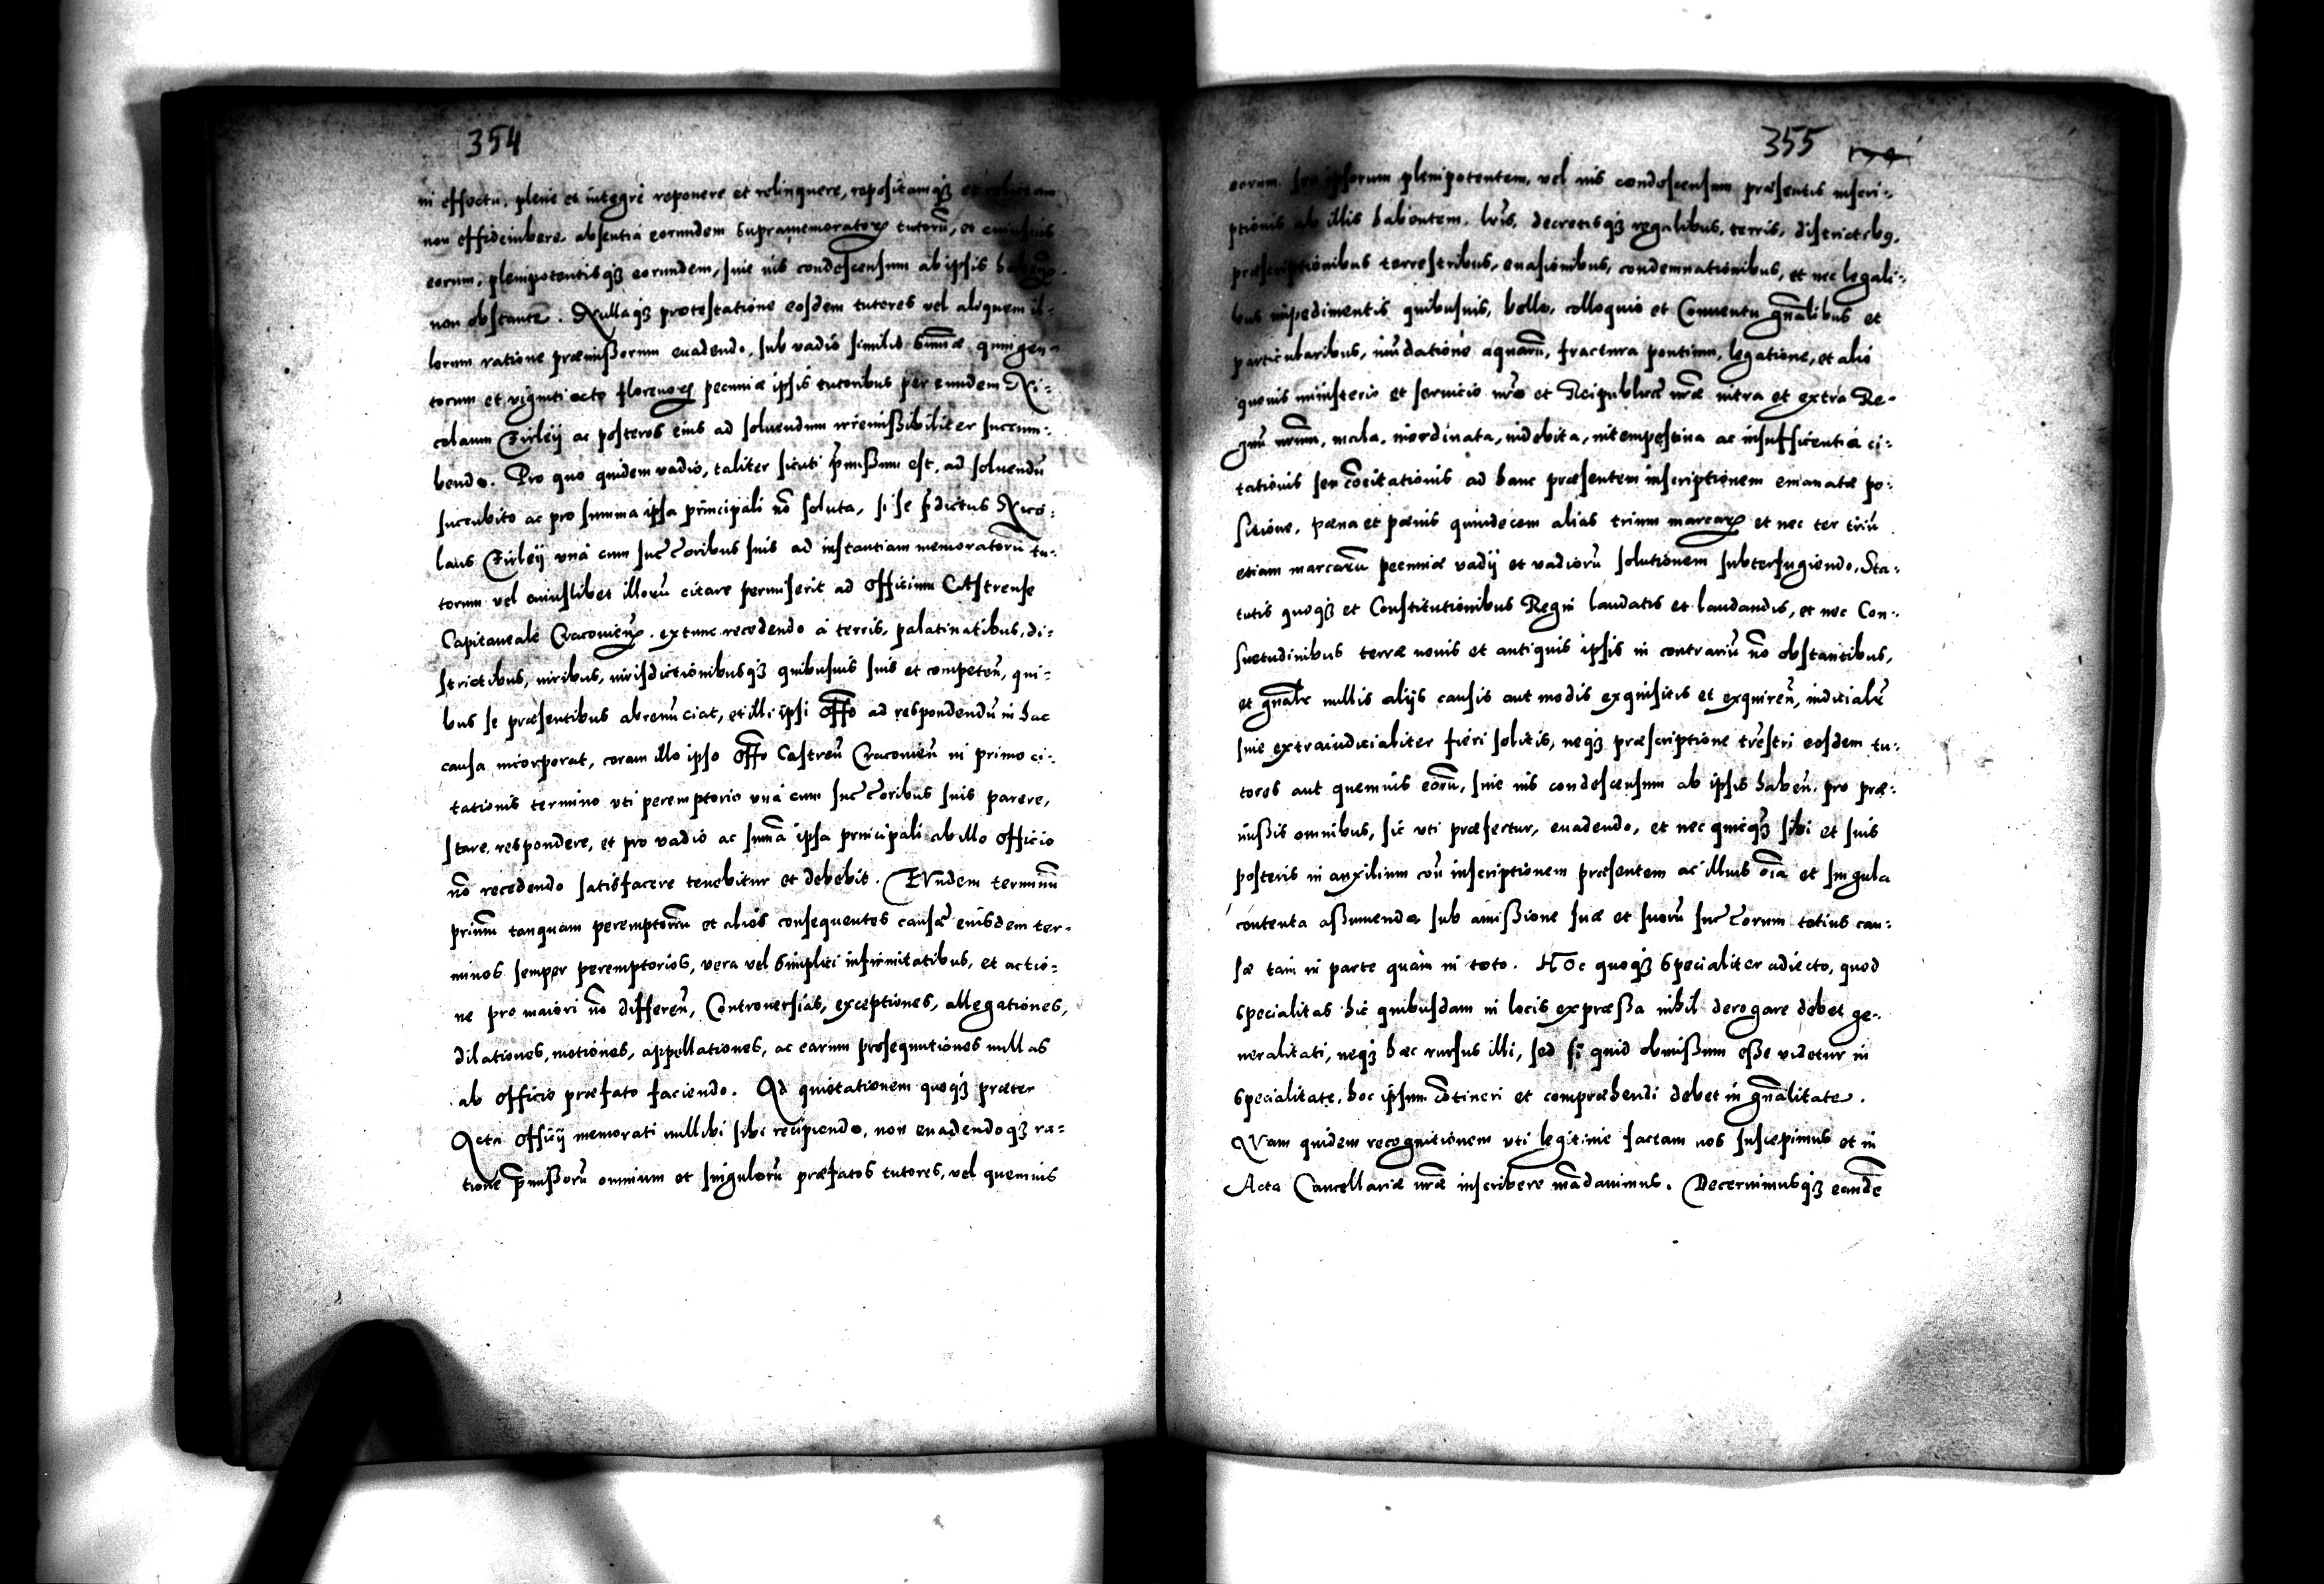 354
in effectu, plene et integre reponere et relinquere, repositamq3 et relictam
non effidemubere, absentia eorundem supramemoratorꝝ tutorū, et cuiusvis
eorum, plenipotentisq3 eorundem, siue uis condescensum ab ipsis haben̄.
non obstante. Nullaq3 protestatione eosdem tutores vel aliquem il-
lorum ratione præmissorum euadendo, sub vadio similis sum̄æ quingen-
torum et viginti octo florenorꝝ pecuniæ ipsis tutoribus per eundem Ni-
colaum Cirleÿ ac posteros eius ad soluendum irremissibiliter succum-
bendo. Pro quo quidem vadio, taliter sicuti p̄missum est, ad soluendū
succubito ac pro summa ipsa principali nō soluta, si se p̄dictus Nico-
laus Cirleÿ vnà cum succ̄oribus suis ad instantiam memoratorū tu-
torum vel cuiuslibet illorū citare permiserit ad Officium CAstrense
Capitaneale Cracouien̄. extunc recedendo à terris, palatinatibus, di-
strictibus, iuribus, iurisdictionibusq3 quibusuis suis et competen̄, qui-
bus se præsentibus abrenūciat, et illi ipsi off̄o ad respondendū in hac
causa incorporat, coram illo ipso off̄o Castren̄ Cracouien̄ in primo ci-
tationis termino vti peremptorio vnà cum succ̄oribus suis parere,
stare, respondere, et pro vadio ac sum̄a ipsa principali ab illo officio
nō recedendo satisfacere tenebitur et debebit. EVndem terminū
primū tanquam peremptoriū et alios consequentes causæ eiusdem ter-
minos semper peremptorios, vera vel simplici infirmitatibus, et actio-
ne pro maiori nō differen̄, Controuersias, exceptiones, allegationes,
dilationes, motiones, appellationes, ac earum prosequutiones nullas
ab officio præfato faciendo. Ad quietationem quoq3 præter
Acta officij memorati nullibi sibi recipiendo, non euadendoq3 ra-
tione p̄missorū omnium et singulorū præfatos tutores, vel quemuis
355
eorum seu ipsorum plenipotentem, vel uis condescensum præsentis inscri-
ptionis ab illis habentem. lr̄is, decretisq3 regalibus, terris, districtibꝰ,
præscriptionibus terrestribus, euasionibus, condemnationibus, et nec legali-
bus impedimentis quibusuis, bello, colloquio et Conuentu gn̄alibus et
particularibus, inūdatione aquarū, fractura pontium, legatione, et alio
quouis ministerio et seruicio nr̄o et Reipublicæ nr̄æ intra et extra Re-
gnū nrūm, mala, inordinata, indebita, intempestiua ac insufficentia ci-
tationis seu cōcitationis ad hanc præsentem inscriptionem emanatæ po-
sitione, pæna et pænis quindecem alias trium marcarꝝ et nec ter triū
etiam marcarū pecuniæ vadij et vadiorū solutionem subterfugiendo, Sta-
tutis quoq3 et Constitutionibus Regni laudatis et laudandis, et nec Con-
suetudinibus terræ nouis et antiquis ipsis in contrariū nō obstantibus,
et gn̄alr̄ nullis alijs causis aut modis exquisitis et exquiren̄, iudicialr̄
siue extraiudicialiter fieri solitis, neq3 præscriptione trēstri eosdem tu-
tores aut quemuis eorū, siue uis condescensum ab ipsis haben̄, pro præ-
missis omnibus, sic vti præfertur, euadendo, et nec quicq3 sibi et suis
posteris in auxilium cōn inscriptionem præsentem ac illius oīa et singula
contenta assumendo sub amissione suæ et suorū succ̄orum totius cau-
sæ tam in parte quàm in toto. HOc quoq3 specialiter adiecto, quod
specialitas hic quibusdam in locis expræssa nihil derogare debet ge-
neralitati, neq3 hæc rursus illi, sed si quid obmissum esse videtur in
specialitate, hoc ipsum cōtineri et compræhendi debet in gn̄alitate.
QVam quidem recognitionem vti legitimè factam nos suscepimus et in
Acta Cancellariæ nr̄æ inscribere mādauimus. Decernimusq3 eandē